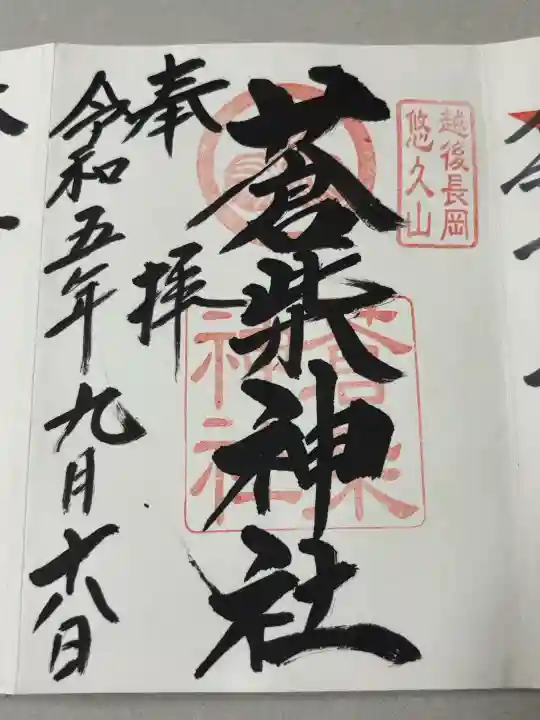 越後長岡
悠久山
蒼柴神社
蒼柴
神社
奉拝
令和五年九月十八日